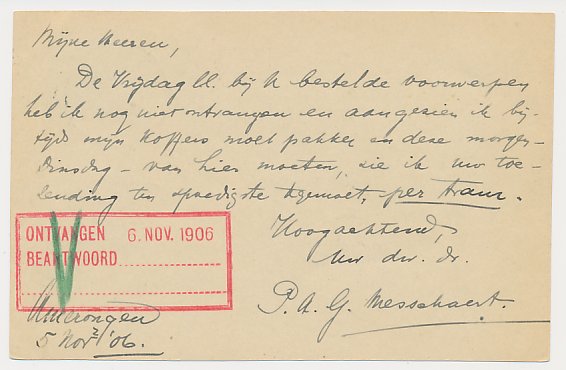 Mijne Heeren,
De Vrijdag ll. bij U bestelde voorwerpen
heb ik nog niet ontvangen en aangezien ik bij-
tijds mijn koffers moet pakken en deze morgen-
Dinsdag - van hier moeten, zie ik uw toe-
zending ten spoedigste tegemoet, per tram.
Hoogachtend,
Uw dw. dr.
P. A. G. Messchaert.
ONTVANGEN 6. NOV. 1906
BEANTWOORD
Amerongen
5 Novr '06.